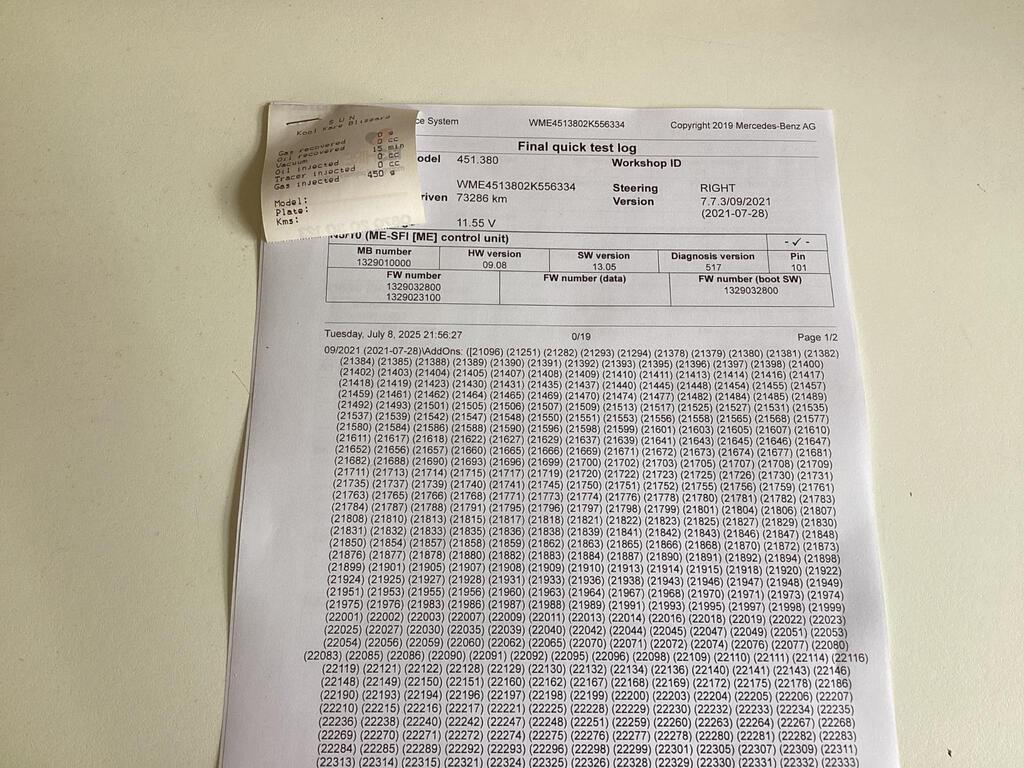 S U N
Kool Kare Blizzard
Gas recovered 0 g
Oil recovered 0 cc
Vacuum 15 min
Oil injected 0 cc
Tracer injected 0 cc
Gas injected 450 g
Model:
Plate:
Kms:
ce System WME4513802K556334 Copyright 2019 Mercedes-Benz AG
Final quick test log
odel 451.380 Workshop ID
WME4513802K556334 Steering RIGHT
riven 73286 km Version 7.7.3/09/2021
(2021-07-28)
11.55 V
N3/10 (ME-SFI [ME] control unit) - ✓ -
MB number HW version SW version Diagnosis version Pin
1329010000 09.08 13.05 517 101
FW number FW number (data) FW number (boot SW)
1329032800 1329032800
1329023100
Tuesday, July 8, 2025 21:56:27 0/19 Page 1/2
09/2021 (2021-07-28)\AddOns: ([21096) (21251) (21282) (21293) (21294) (21378) (21379) (21380) (21381) (21382)
(21384) (21385) (21388) (21389) (21390) (21391) (21392) (21393) (21395) (21396) (21397) (21398) (21400)
(21402) (21403) (21404) (21405) (21407) (21408) (21409) (21410) (21411) (21413) (21414) (21416) (21417)
(21418) (21419) (21423) (21430) (21431) (21435) (21437) (21440) (21445) (21448) (21454) (21455) (21457)
(21459) (21461) (21462) (21464) (21465) (21469) (21470) (21474) (21477) (21482) (21484) (21485) (21489)
(21492) (21493) (21501) (21505) (21506) (21507) (21509) (21513) (21517) (21525) (21527) (21531) (21535)
(21537) (21539) (21542) (21547) (21548) (21550) (21551) (21553) (21556) (21558) (21565) (21568) (21577)
(21580) (21584) (21586) (21588) (21590) (21596) (21598) (21599) (21601) (21603) (21605) (21607) (21610)
(21611) (21617) (21618) (21622) (21627) (21629) (21637) (21639) (21641) (21643) (21645) (21646) (21647)
(21652) (21656) (21657) (21660) (21665) (21666) (21669) (21671) (21672) (21673) (21674) (21677) (21681)
(21682) (21688) (21690) (21693) (21696) (21699) (21700) (21702) (21703) (21705) (21707) (21708) (21709)
(21711) (21713) (21714) (21715) (21717) (21719) (21720) (21722) (21723) (21725) (21726) (21730) (21731)
(21735) (21737) (21739) (21740) (21741) (21745) (21750) (21751) (21752) (21755) (21756) (21759) (21761)
(21763) (21765) (21766) (21768) (21771) (21773) (21774) (21776) (21778) (21780) (21781) (21782) (21783)
(21784) (21787) (21788) (21791) (21795) (21796) (21797) (21798) (21799) (21801) (21804) (21806) (21807)
(21808) (21810) (21813) (21815) (21817) (21818) (21821) (21822) (21823) (21825) (21827) (21829) (21830)
(21831) (21832) (21833) (21835) (21836) (21838) (21839) (21841) (21842) (21843) (21846) (21847) (21848)
(21850) (21854) (21857) (21858) (21859) (21862) (21863) (21865) (21866) (21868) (21870) (21872) (21873)
(21876) (21877) (21878) (21880) (21882) (21883) (21884) (21887) (21890) (21891) (21892) (21894) (21898)
(21899) (21901) (21905) (21907) (21908) (21909) (21910) (21913) (21914) (21915) (21918) (21920) (21922)
(21924) (21925) (21927) (21928) (21931) (21933) (21936) (21938) (21943) (21946) (21947) (21948) (21949)
(21951) (21953) (21955) (21956) (21960) (21963) (21964) (21967) (21968) (21970) (21971) (21973) (21974)
(21975) (21976) (21983) (21986) (21987) (21988) (21989) (21991) (21993) (21995) (21997) (21998) (21999)
(22001) (22002) (22003) (22007) (22009) (22011) (22013) (22014) (22016) (22018) (22019) (22022) (22023)
(22025) (22027) (22030) (22035) (22039) (22040) (22042) (22044) (22045) (22047) (22049) (22051) (22053)
(22054) (22056) (22059) (22060) (22062) (22065) (22070) (22071) (22072) (22074) (22076) (22077) (22080)
(22083) (22085) (22086) (22090) (22091) (22092) (22095) (22096) (22098) (22109) (22110) (22111) (22114) (22116)
(22119) (22121) (22122) (22128) (22129) (22130) (22132) (22134) (22136) (22140) (22141) (22143) (22146)
(22148) (22149) (22150) (22151) (22160) (22162) (22167) (22168) (22169) (22172) (22175) (22178) (22186)
(22190) (22193) (22194) (22196) (22197) (22198) (22199) (22200) (22203) (22204) (22205) (22206) (22207)
(22210) (22215) (22216) (22217) (22221) (22225) (22228) (22229) (22230) (22232) (22233) (22234) (22235)
(22236) (22238) (22240) (22242) (22247) (22248) (22251) (22259) (22260) (22263) (22264) (22267) (22268)
(22269) (22270) (22271) (22272) (22274) (22275) (22276) (22277) (22278) (22280) (22281) (22282) (22283)
(22284) (22285) (22289) (22292) (22293) (22296) (22298) (22299) (22301) (22305) (22307) (22309) (22311)
(22313) (22314) (22315) (22321) (22324) (22325) (22326) (22328) (22329) (22330) (22331) (22332) (22333)